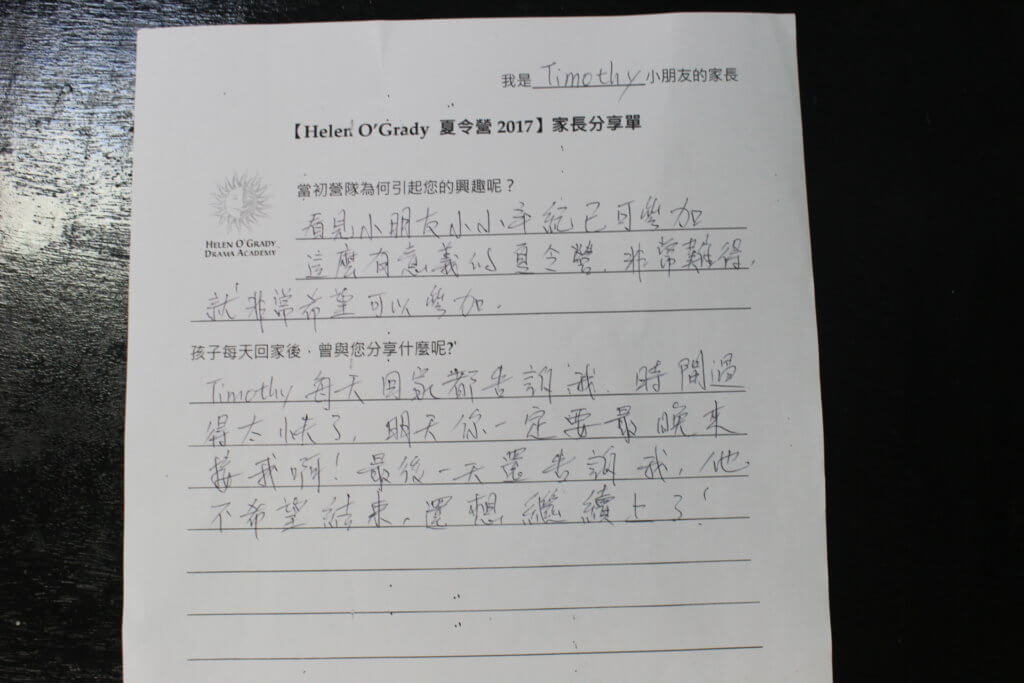 我是 Timothy 小朋友的家長
【Helen O'Grady 夏令營 2017】家長分享單
當初營隊為何引起您的興趣呢？
HELEN O'GRADY
DRAMA ACADEMY
看見小朋友小小年紀已可參加
這麼有意義的夏令營，非常難得，
就非常希望可以參加．
孩子每天回家後，曾與您分享什麼呢?
Timothy 每天回家都告訴我，時間過
得太快了，明天你一定要最晚來
接我啊！最後一天還告訴我，他
不希望結束，還想繼續上了！